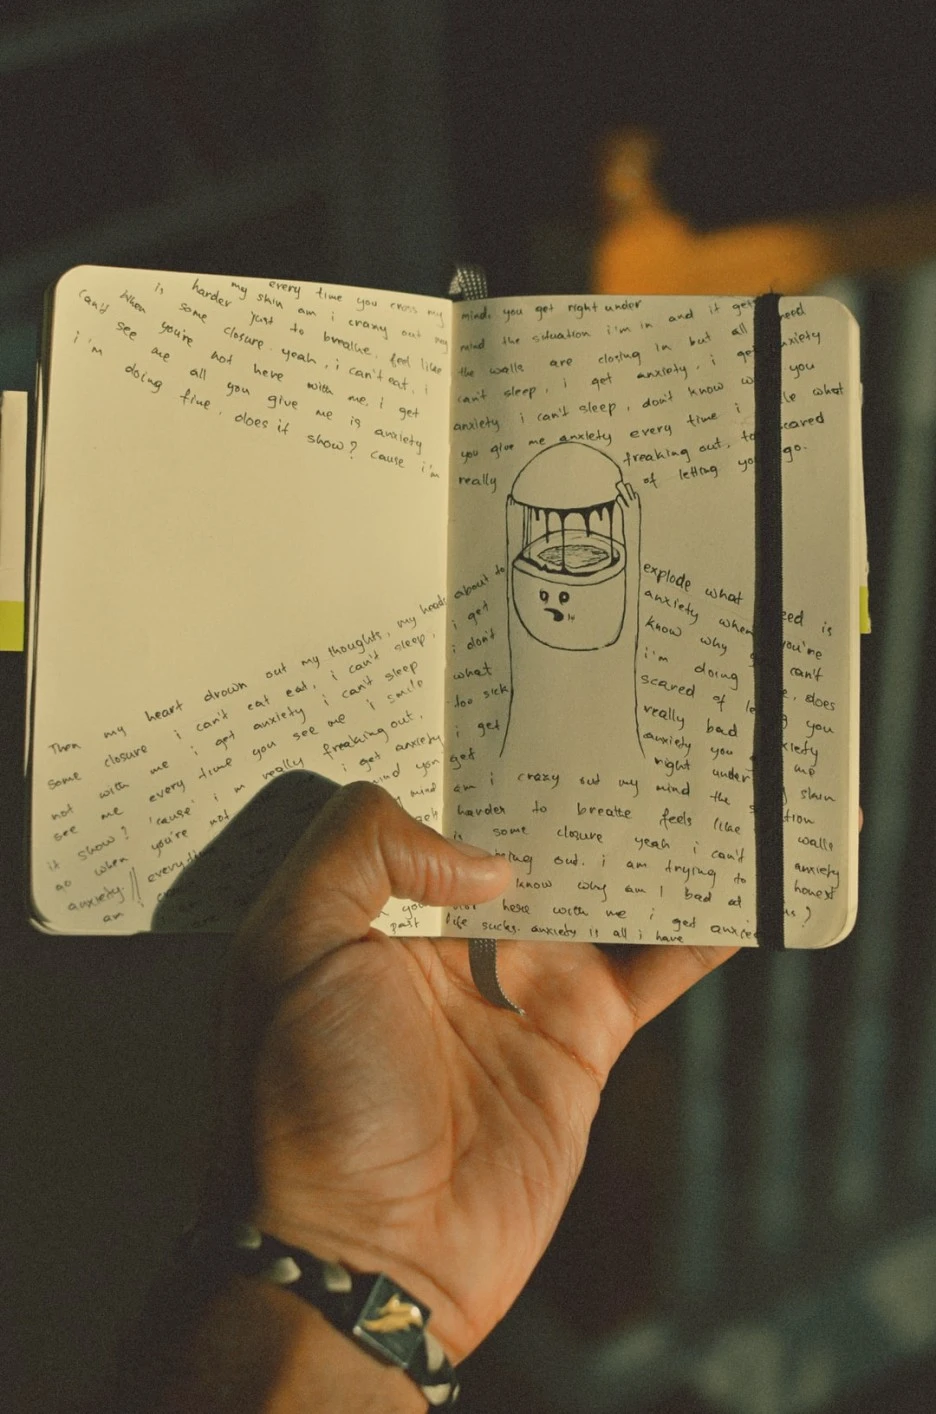 every time you cross my
is harder my skin am i crazy out my
When some just to breathe. feel like
can't see you're closure. yeah, i can't eat, i
i'm me not here with me. i get
doing all you give me is anxiety
fine. does it show? cause i'm
mind. you get right under
mind the situation i'm in and it gets
the walls are closing in but all need
can't sleep, i get anxiety. i get anxiety
anxiety i can't sleep, don't know you
you give me anxiety every time i what
really freaking out, scared
of letting you go.
Then my heart drown out my thoughts, my heads about to
some closure i can't eat eat, i can't sleep, i get
not with me i get anxiety i can't sleep i don't
see me every time you see me i smile what
it show? 'cause' i'm really freaking out, too sick
go when you're not i get anxiety i get
anxiety. mind you get
am
explode what is
anxiety when you're
know why can't
i'm doing does
scared of you
really bad
anxiety you me
right under skin
am i crazy out my mind the
harder to breathe feels like walls
is some closure yeah i can't anxiety
out. i am trying to honest
know why am I bad at
here with me i get
past life sucks. anxiety is all i have